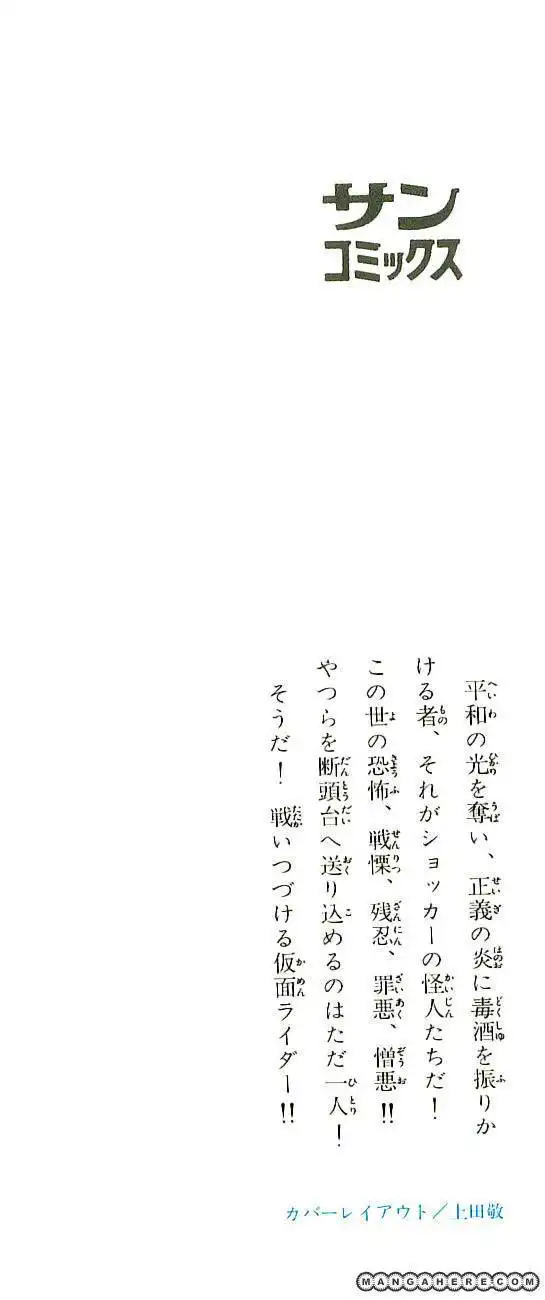 サン
コミックス
平和の光を奪い、正義の炎に毒酒を振りか
ける者、それがショッカーの怪人たちだ！
この世の恐怖、戦慄、残忍、罪悪、憎悪!!
やつらを断頭台へ送り込めるのはただ一人！
そうだ！ 戦いつづける仮面ライダー!!
カバーレイアウト／上田敬
MANGAHERE.COM